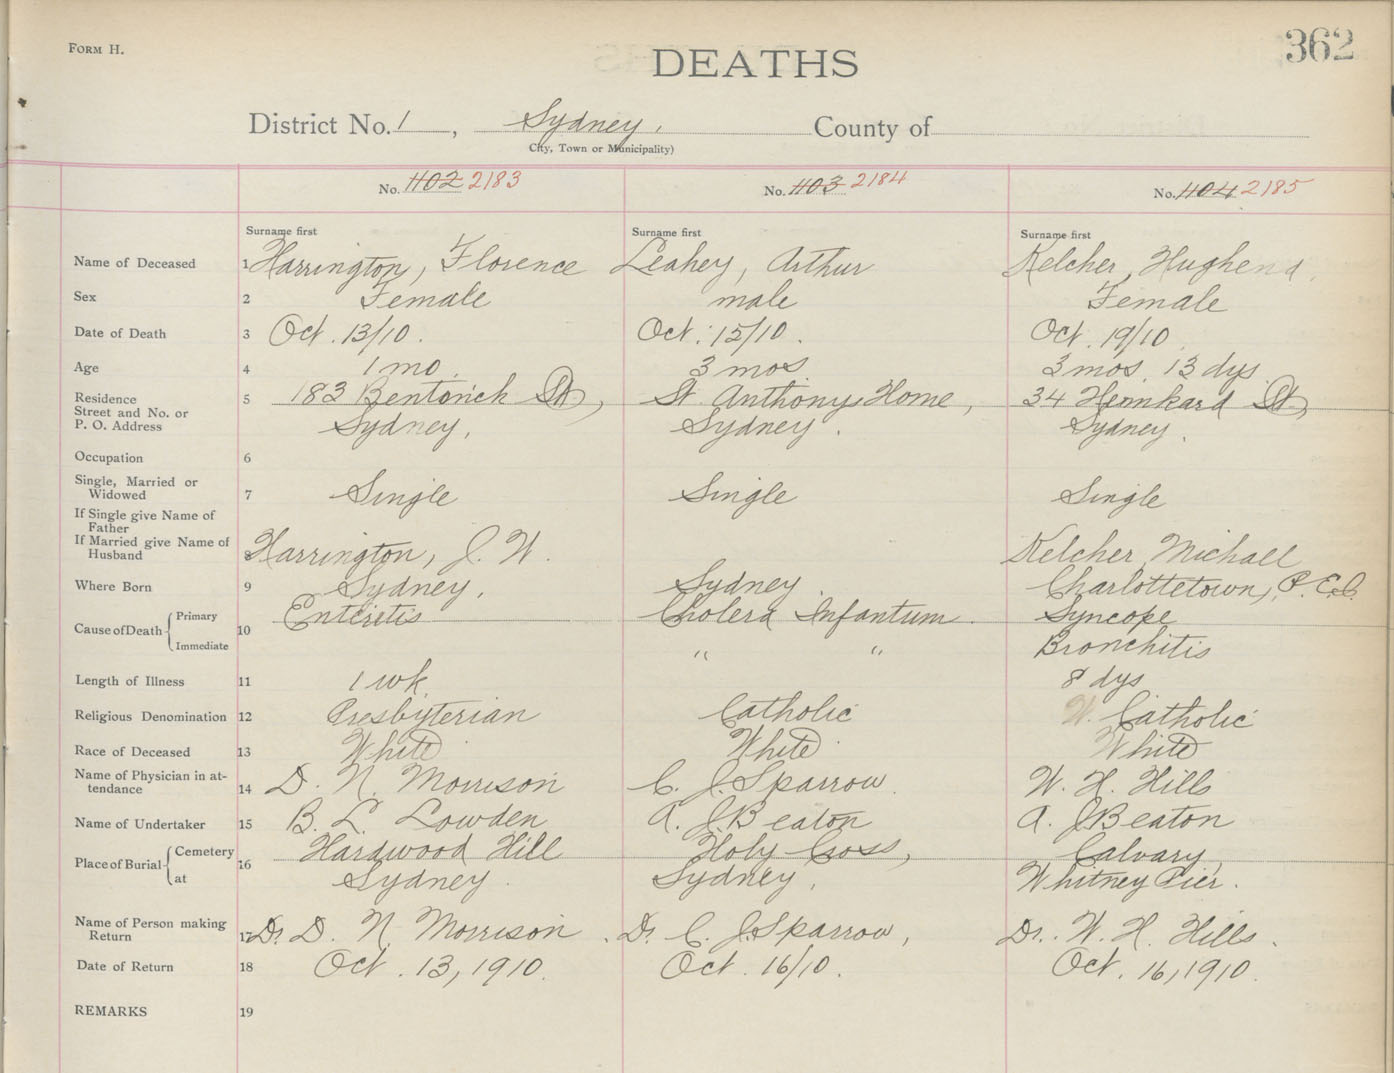 FORM H.
362
DEATHS
District No. 1, Sydney, County of
City, Town or Municipality)
No. 1102 2183 No. 1103 2184 No. 1104 2185
Surname first Surname first Surname first
Name of Deceased 1 Harrington, Florence Leahey, Arthur Kelcher, Hughena
Sex 2 Female male Female
Date of Death 3 Oct. 13/10. Oct. 15/10. Oct. 19/10
Age 4 1 mo. 3 mos 3 mos 13 dys
Residence 5 183 Bentinick St, St. Anthony Home, 34 St,
Street and No. or
P. O. Address Sydney, Sydney. Sydney.
Occupation 6
Single, Married or
Widowed 7 Single Single Single
If Single give Name of
Father
If Married give Name of
Husband 8 Harrington, J. W. Kelcher, Michall
Where Born 9 Sydney, Sydney Charlottetown, P.E.I.
Cause of Death Primary 10 Enteritis Cholera Infantum. Syncope
Immediate " " Bronchitis
Length of Illness 11 1 wk. 8 dys
Religious Denomination 12 Presbyterian Catholic Catholic
Race of Deceased 13 White White White
Name of Physician in at-
tendance 14 D. N. Morrison C. J. Sparrow W. H. Hills
Name of Undertaker 15 B. L. Lowden A. J. Beaton A. J. Beaton
Place of Burial Cemetery 16 Hardwood Hill Holy Cross, Calvary,
at Sydney. Sydney, Whitney Pier.
Name of Person making
Return 17 Dr. D. N. Morrison. Dr. C. J. Sparrow, Dr. W. H. Hills.
Date of Return 18 Oct. 13, 1910. Oct. 16/10. Oct. 16, 1910
REMARKS 19